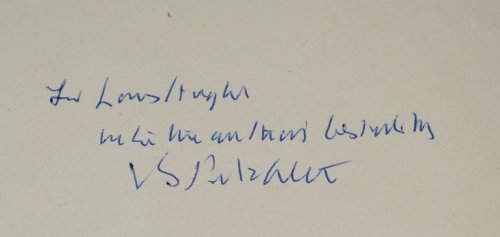 For Louis Hughes
with the author's best wishes
V S Pritchett